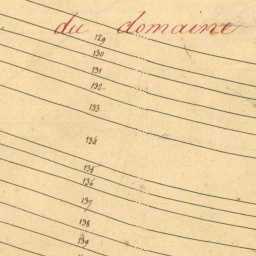 du domaine
129
130
131
132
133
134
135
136
137
138
139